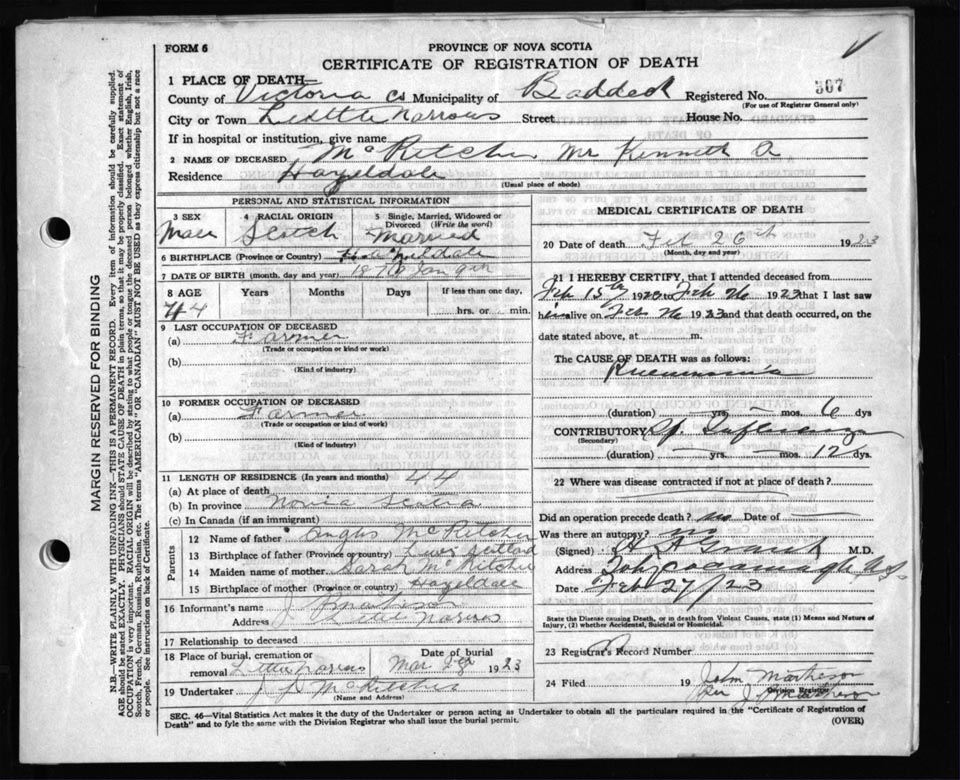 FORM 6
PROVINCE OF NOVA SCOTIA
CERTIFICATE OF REGISTRATION OF DEATH
1 PLACE OF DEATH—
County of Victoria Co Municipality of Baddeck Registered No. 367
(For use of Registrar General only)
City or Town Little Narrows Street House No.
If in hospital or institution, give name
2 NAME OF DECEASED McRitchie Mr Kenneth A
Residence Hazeldale
(Usual place of abode)
PERSONAL AND STATISTICAL INFORMATION
3 SEX Male
4 RACIAL ORIGIN Scotch
5 Single, Married, Widowed or Divorced (Write the word) Married
6 BIRTHPLACE (Province or Country)
7 DATE OF BIRTH (month, day and year) 1879 Jan 9th
8 AGE 44 Years Months Days If less than one day, hrs. or min.
9 LAST OCCUPATION OF DECEASED
(a) Farmer
(Trade or occupation or kind or work)
(b)
(Kind of industry)
10 FORMER OCCUPATION OF DECEASED
(a) Farmer
(Trade or occupation or kind of work)
(b)
(Kind of industry)
11 LENGTH OF RESIDENCE (In years and months) 44
(a) At place of death
(b) In province Nova Scotia
(c) In Canada (if an immigrant)
Parents
12 Name of father Angus McRitchie
13 Birthplace of father (Province or country) Lewis Scotland
14 Maiden name of mother Sarah McRitchie
15 Birthplace of mother (Province or country) Hazeldale
16 Informant's name J
Address Little Narrows
17 Relationship to deceased
18 Place of burial, cremation or removal Little Narrows Date of burial Mar 1923
19 Undertaker J McRitchie
(Name and Address)
MEDICAL CERTIFICATE OF DEATH
20 Date of death Feb 26th 1923
(Month, day and year)
21 I HEREBY CERTIFY, that I attended deceased from
Feb 15th 1923 to Feb 26 1923 that I last saw
him alive on Feb 26 1923 and that death occurred, on the
date stated above, at m.
The CAUSE OF DEATH was as follows:
Pneumonia
(duration) — yrs. — mos. 6 dys
CONTRIBUTORY Influenza
(Secondary)
(duration) — yrs. — mos. 12 dys.
22 Where was disease contracted if not at place of death?
Did an operation precede death? no Date of
Was there an autopsy? no
(Signed) M.D.
Address Whycocomagh NS
Date Feb 27/23
State the Disease causing Death, or in death from Violent Causes, state (1) Means and Nature of Injury, (2) whether Accidental, Suicidal or Homicidal.
23 Record Number
24 Filed 19 John
Division Registrar
Per J
SEC. 46—Vital Statistics Act makes it the duty of the Undertaker or person acting as Undertaker to obtain all the particulars required in the "Certificate of Registration of
Death" and to fyle the same with the Division Registrar who shall issue the burial permit.
(OVER)
MARGIN RESERVED FOR BINDING
N.B.—WRITE PLAINLY WITH UNFADING INK—THIS IS A PERMANENT RECORD. Every item of information should be carefully supplied.
AGE should be stated EXACTLY. PHYSICIANS should STATE CAUSE OF DEATH in plain terms, so that it may be properly classified. Exact statement of
OCCUPATION is very important. RACIAL ORIGIN will be described by stating to what people or tongue the deceased person belonged whether English, Irish,
Scotch, French, German, Russian, Ruthenian, etc. The terms "AMERICAN" OR "CANADIAN" MUST NOT BE USED as they express citizenship but not a race
or people. See instructions on back of Certificate.